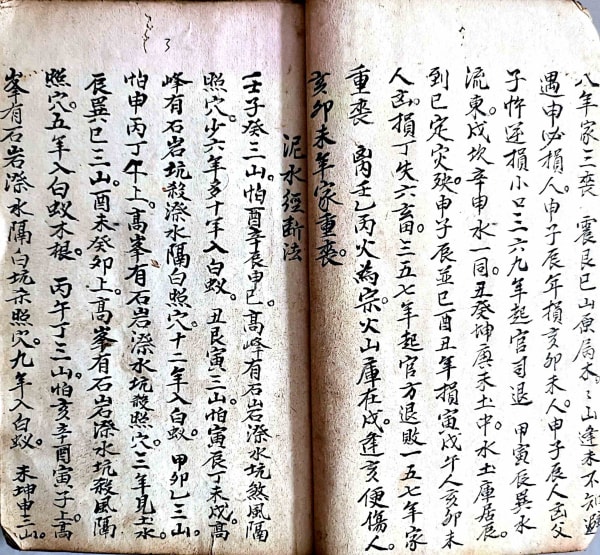 八年家三喪 震艮巳山原属木。木山逢未不知避
遇申必损人。申子辰年损亥卯未人。申子辰人忌父
子忤逆损小口三六九年起官司退 甲寅辰巽水
流東。戌坎辛申水一同。丑癸坤庚未土中。水土庫居辰。
到巳定灾殃。申子辰並巳酉丑年损寅戌午人亥卯未
人忌。损丁失六畜。三五七年起官方退敗一五七年家
重喪 离壬乙丙火為宗。火山庫在戌。逢亥便傷人。
亥卯未年家重喪。
泥水經断法
壬子癸三山。怕酉辛辰申巳。高峰有石岩漈水坑煞風隔
照穴。少六年多十年入白蚁。 丑艮寅三山。怕寅辰丁未戌高
峰有石岩坑殺漈水隔白照穴。十二年入白蚁。 甲卯乙三山
怕申丙丁午上。高峯有石岩漈水坑殺照穴。三年見土水
辰巽巳三山。酉未癸卯上。高峯有石岩漈水坑殺風隔
照穴。五年入白蚁木根。 丙午丁三山。怕亥辛酉寅子上高
峯有石岩漈水隔白坑杀照穴。九年入白蚁 未坤申三山。